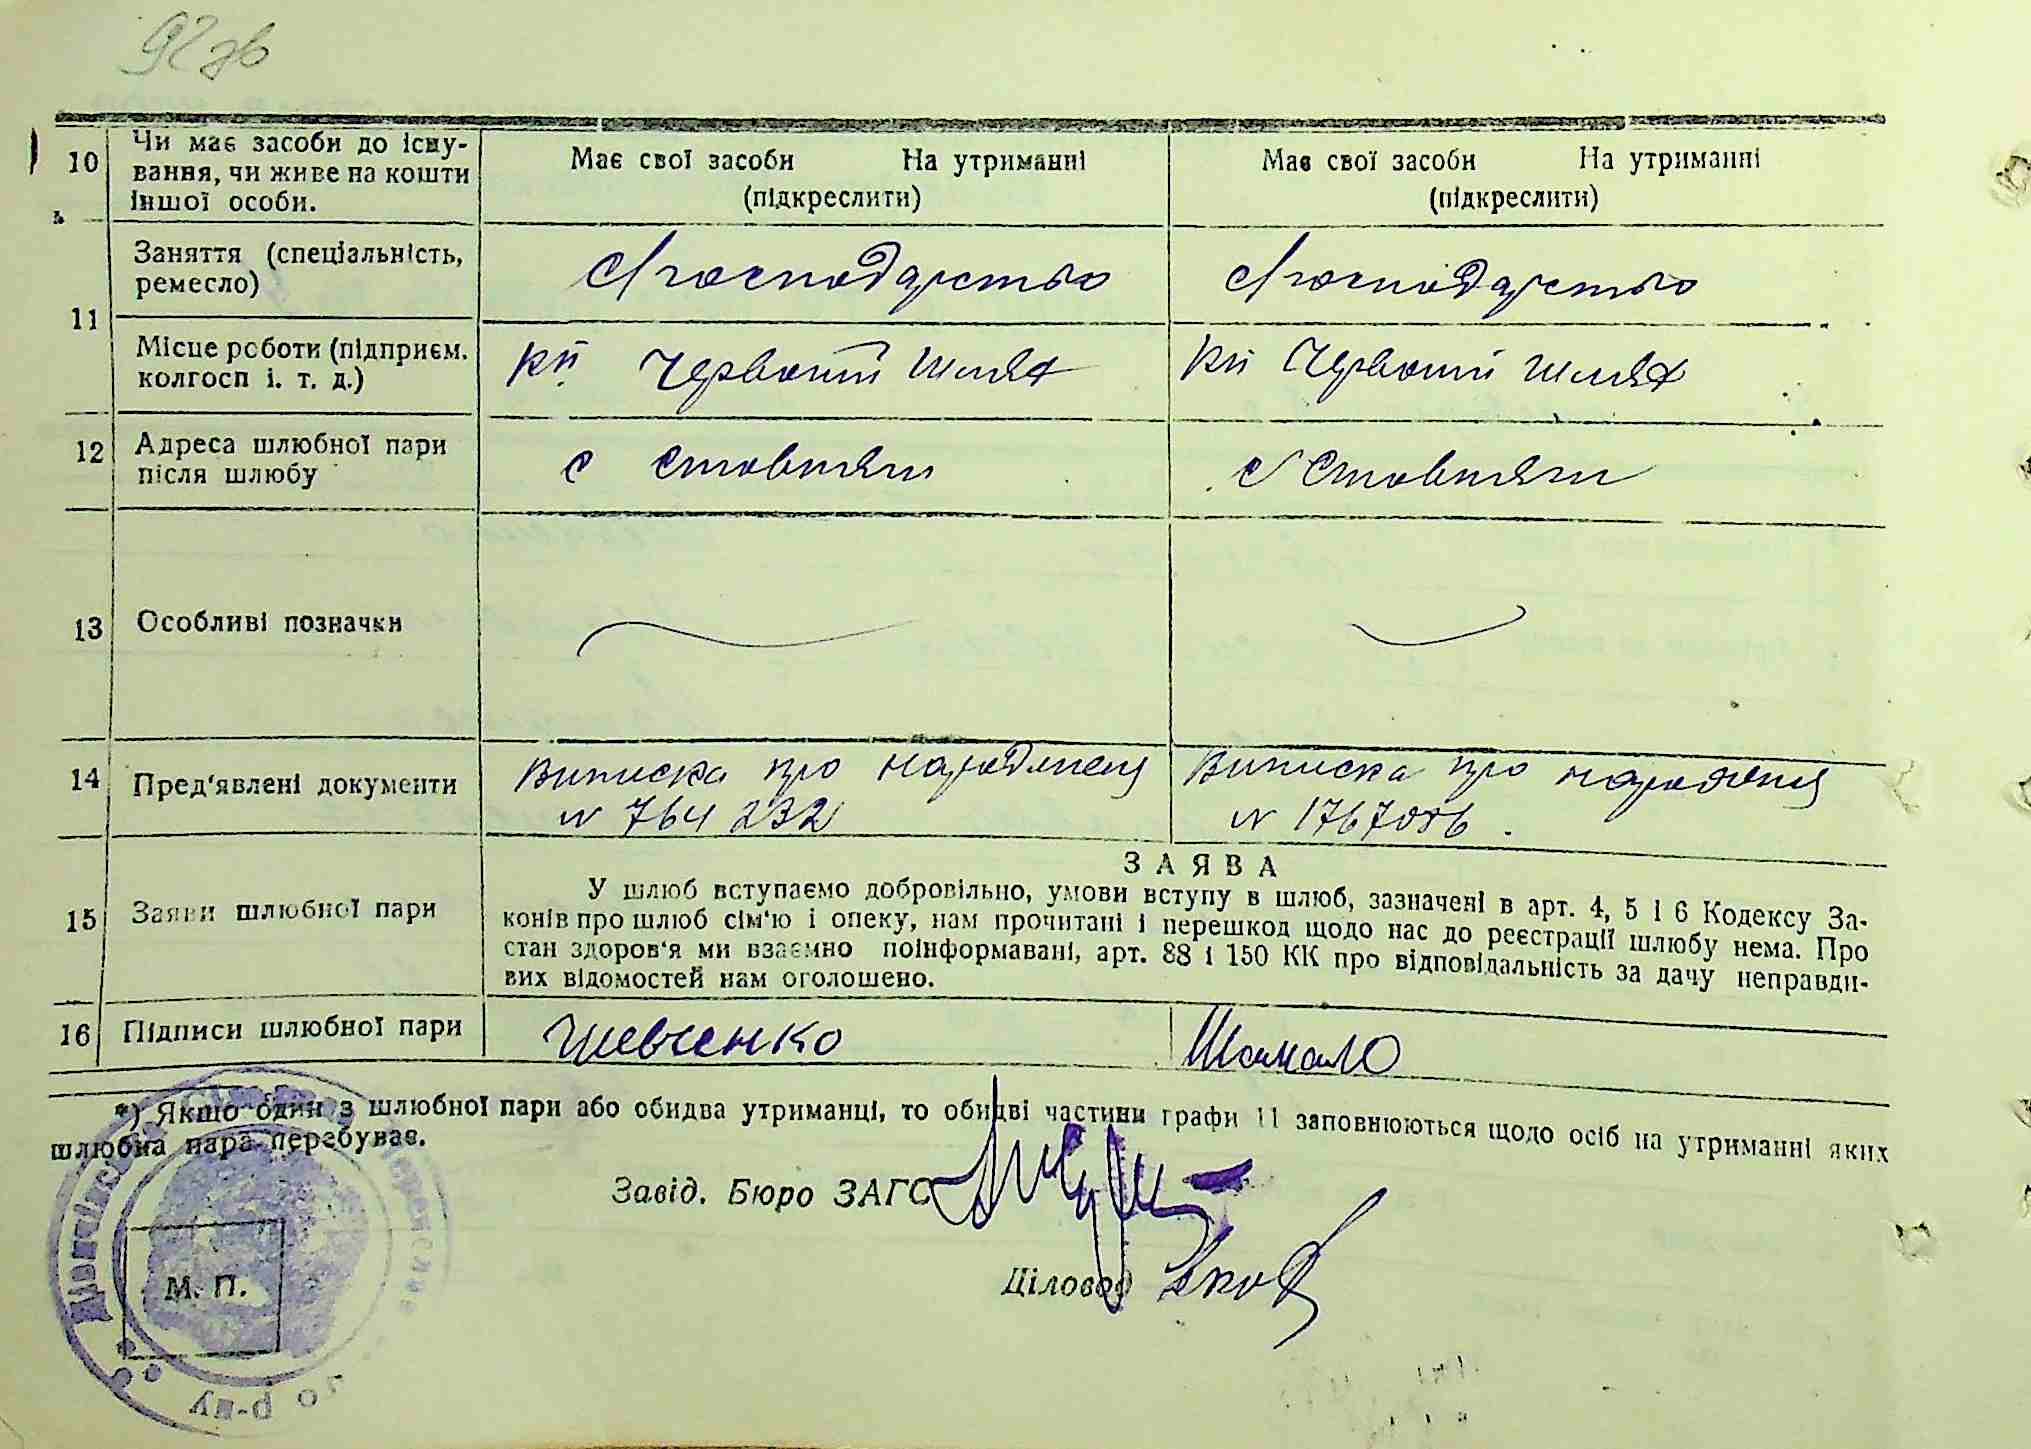 92 зв
10 Чи має засоби до існу-
вання, чи живе на кошти
іншої особи.
Має свої засоби На утриманні
(підкреслити)
Має свої засоби На утриманні
(підкреслити)
11
Заняття (спеціальність,
ремесло)
С/господарство
С/господарство
Місце роботи (підприєм.
колгосп і. т. д.)
Червоний шлях
Червоний шлях
12 Адреса шлюбної пари
після шлюбу
с Стовпяги
с Стовпяги
13 Особливі позначки
14 Пред'явлені документи
Виписка про народження
N 764 232
Виписка про народження
N
15 Заяви шлюбної пари
ЗАЯВА
У шлюб вступаємо добровільно, умови вступу в шлюб, зазначені в арт. 4, 5 і 6 Кодексу За-
конів про шлюб сім'ю і опеку, нам прочитані і перешкод щодо нас до реєстрації шлюбу нема. Про
стан здоров'я ми взаємно поінформавані, арт. 88 і 150 КК про відповідальність за дачу неправди-
вих відомостей нам оголошено.
16 Підписи шлюбної пари
Шевченко
Шакало
*) Якшо один з шлюбної пари або обидва утриманці, то обидві частини графи 11 заповнюються щодо осіб на утриманні яких
шлюбна пара перебуває.
Завід. Бюро ЗАГС
Діловод
М. П.
р-ну